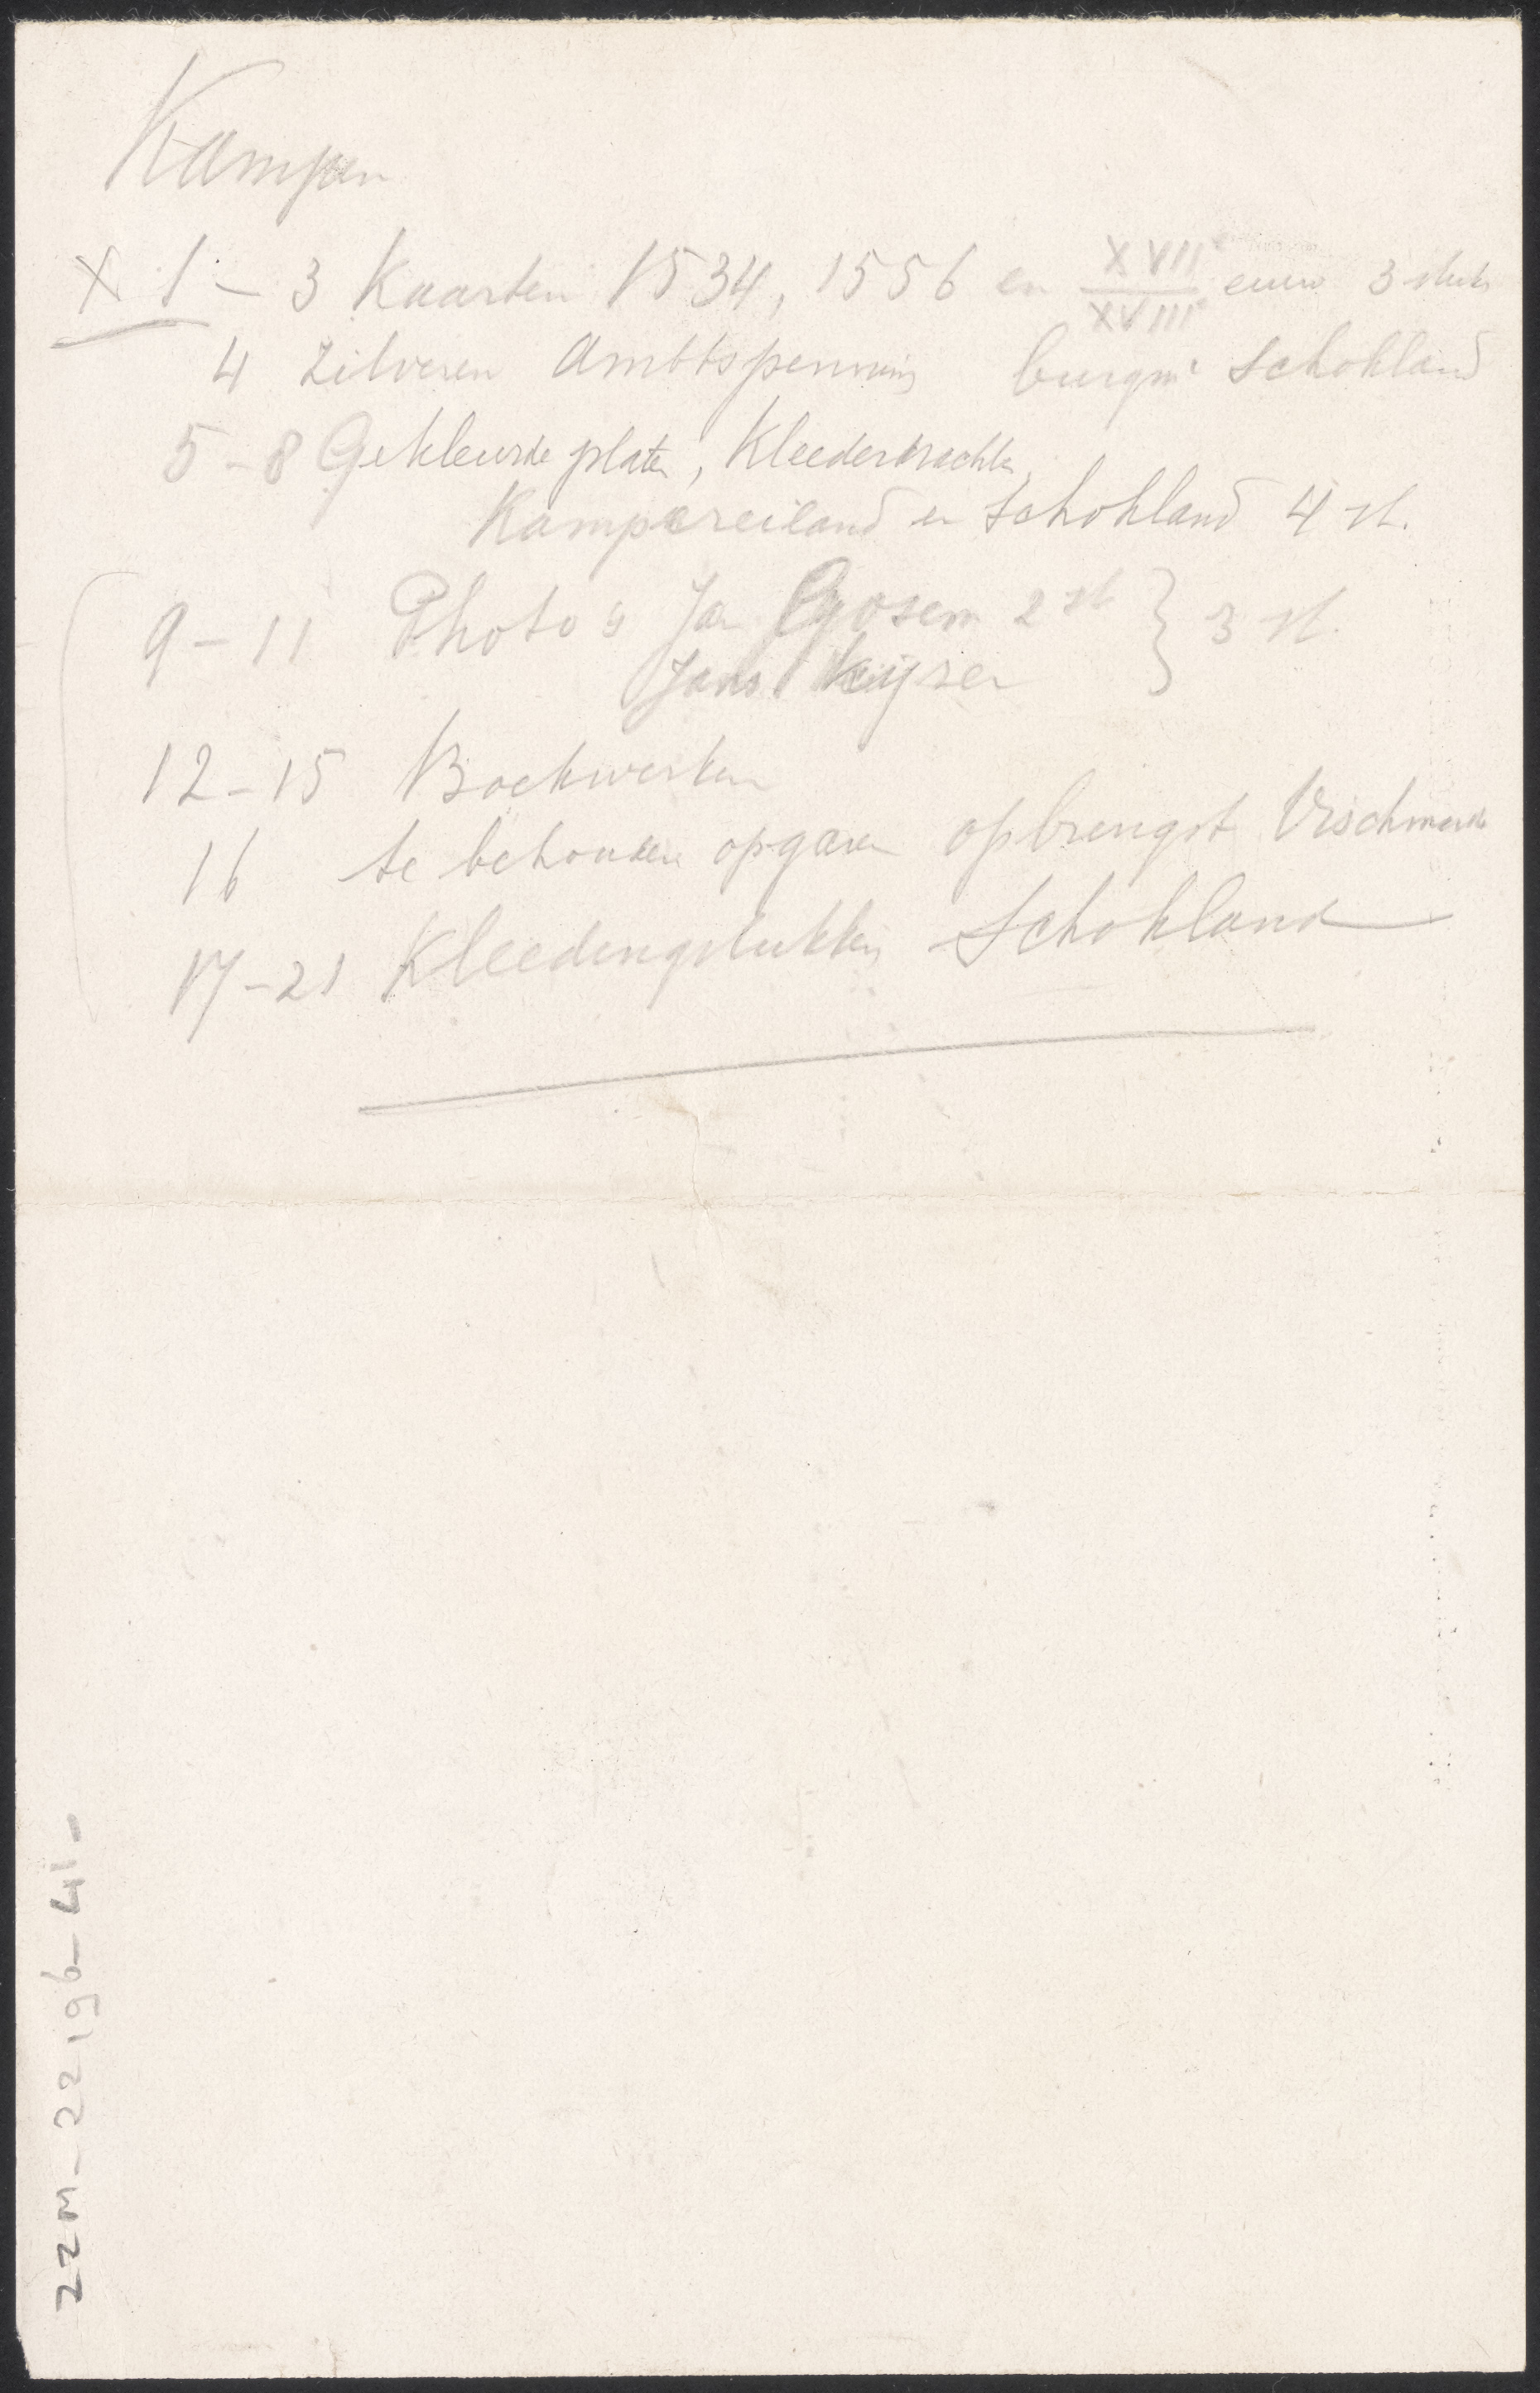 Kampen
X 1 - 3 Kaarten 1534, 1556 en XVIIe eeuw 3 stuks
XVIIIe
4 Zilveren Ambtspenning burgmr Schokland
5 - 8 Gekleurde platen, Kleederdrachten
Kampereiland en Schokland 4 st.
9 - 11 Photo's Jan Goosen 2 st } 3 st.
Jans Keijzer
12 - 15 Boekwerken
16 te behouden opgaven opbrengst Vischmarkt
17 - 21 Kleedingstukken Schokland
ZZM - 22196 - 41 -